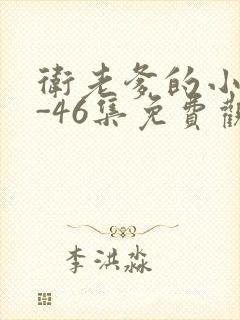 衛老爹的小
-46集免費觀
李洪淼